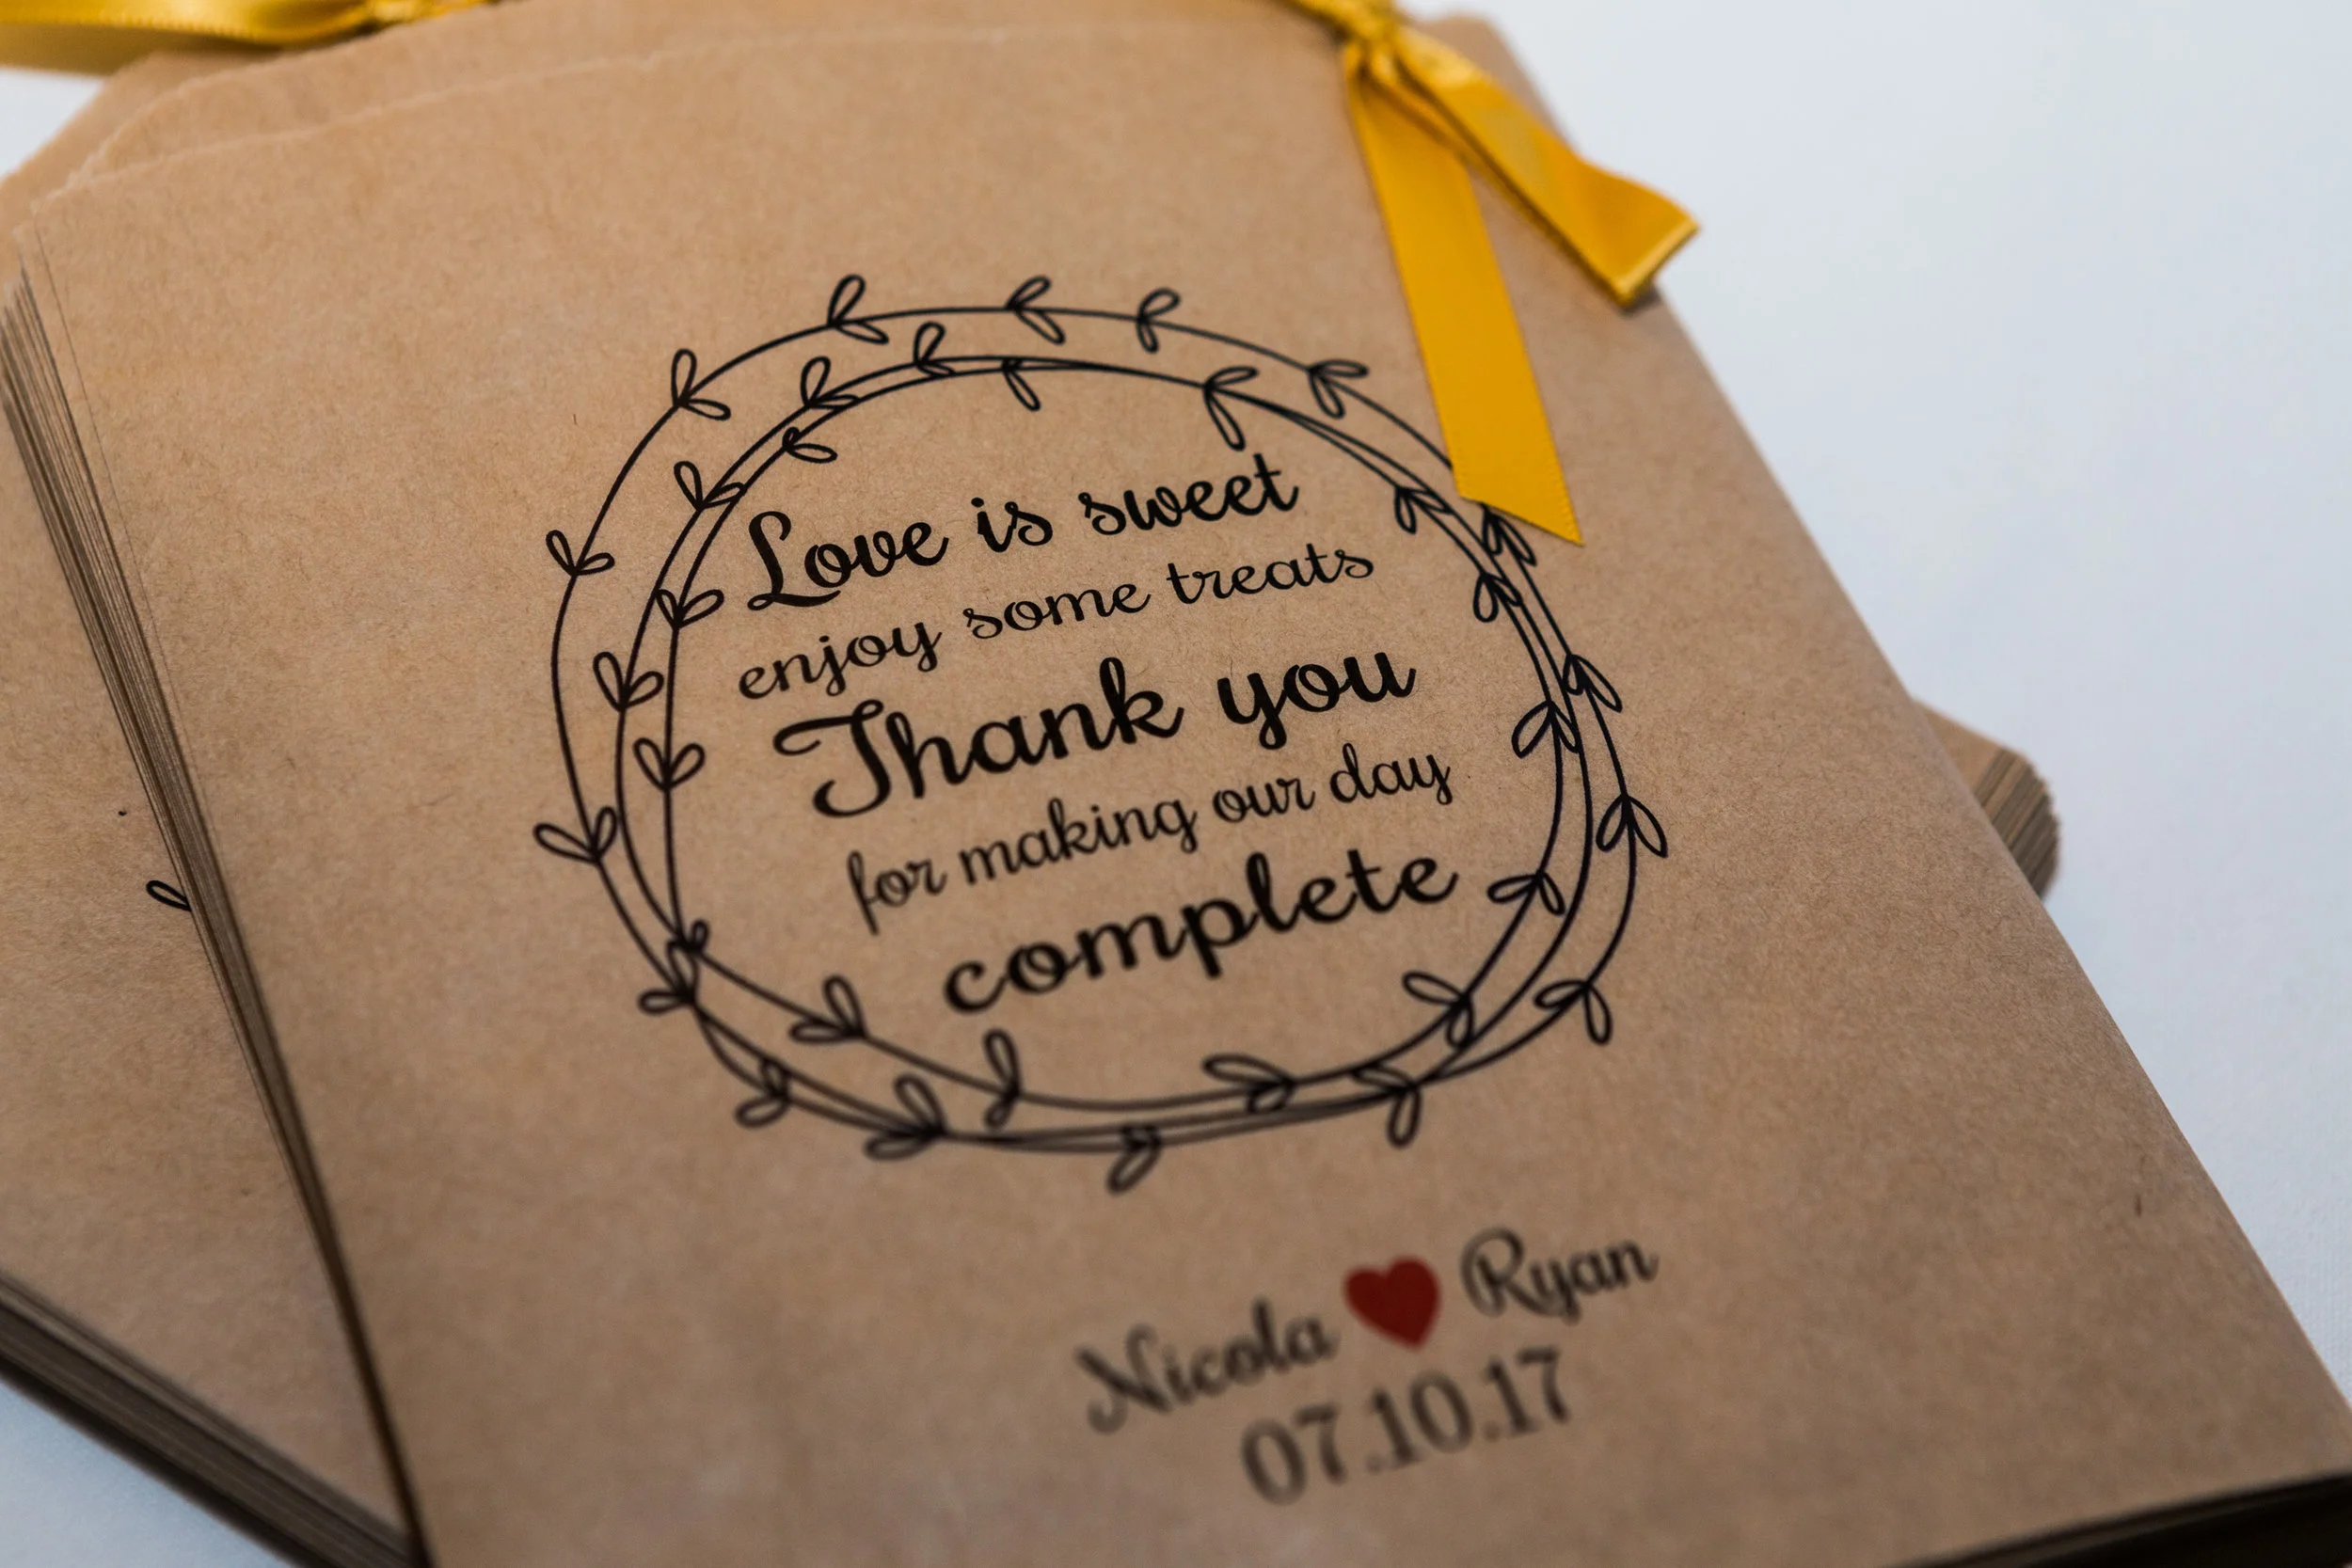 Love is sweet
enjoy some treats
Thank you
for making our day
complete
Nicola ❤ Ryan
07.10.17